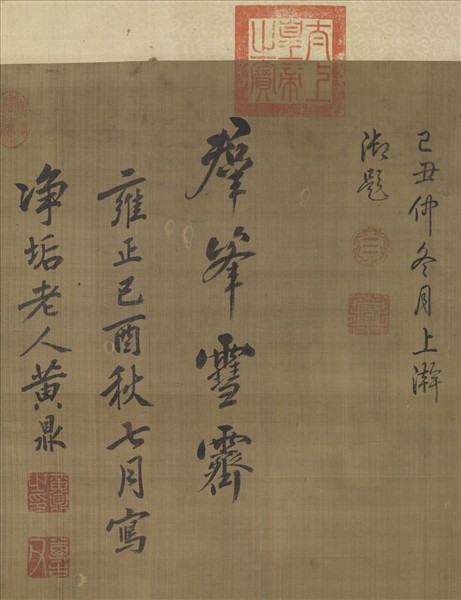 太上
皇帝
之寶
己丑仲冬月上澣
御題
羣峯雪霽
雍正己酉秋七月寫
净垢老人黃鼎
黃鼎
之印